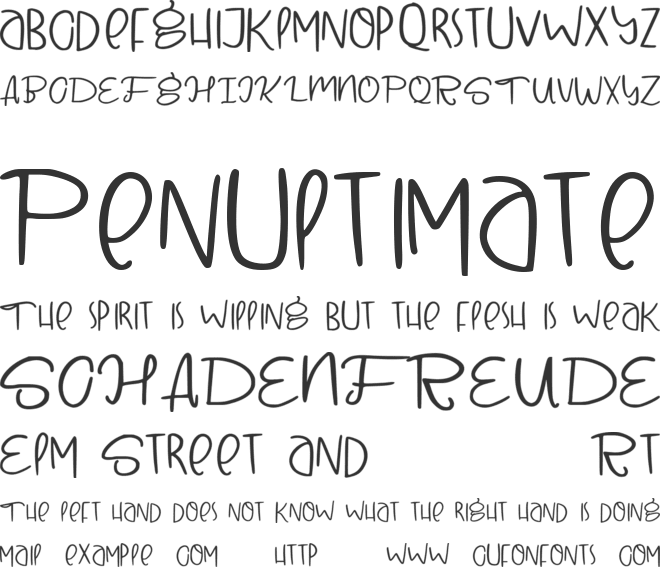 aBCDefgHIJKlMNOPQRSTUVWXYZ
ABCDEFgHIJKLMNOPQRSTUVWXYZ
PeNUlTIMaTe
THe SPIRIT IS WIllINg BUT THe fleSH IS WeaK
SCHADENFREUDE
ElM STReeT aND RT
THe lefT HaND DOeS NOT KNOW WHaT THe RIgHT HaND IS DOINg
MaIl eXaMPle COM HTTP WWW CUfONfONTS COM